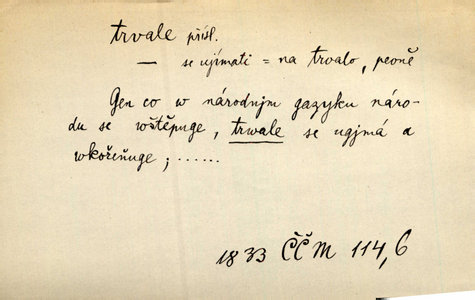 trvale přísl.
— se ujímati = na trvalo, pevně
Gen co w národnjm gazyku náro-
du se wštěpuge, trwale se ugjmá a
wkořeňuge; ......
1833 ČČM 114,6